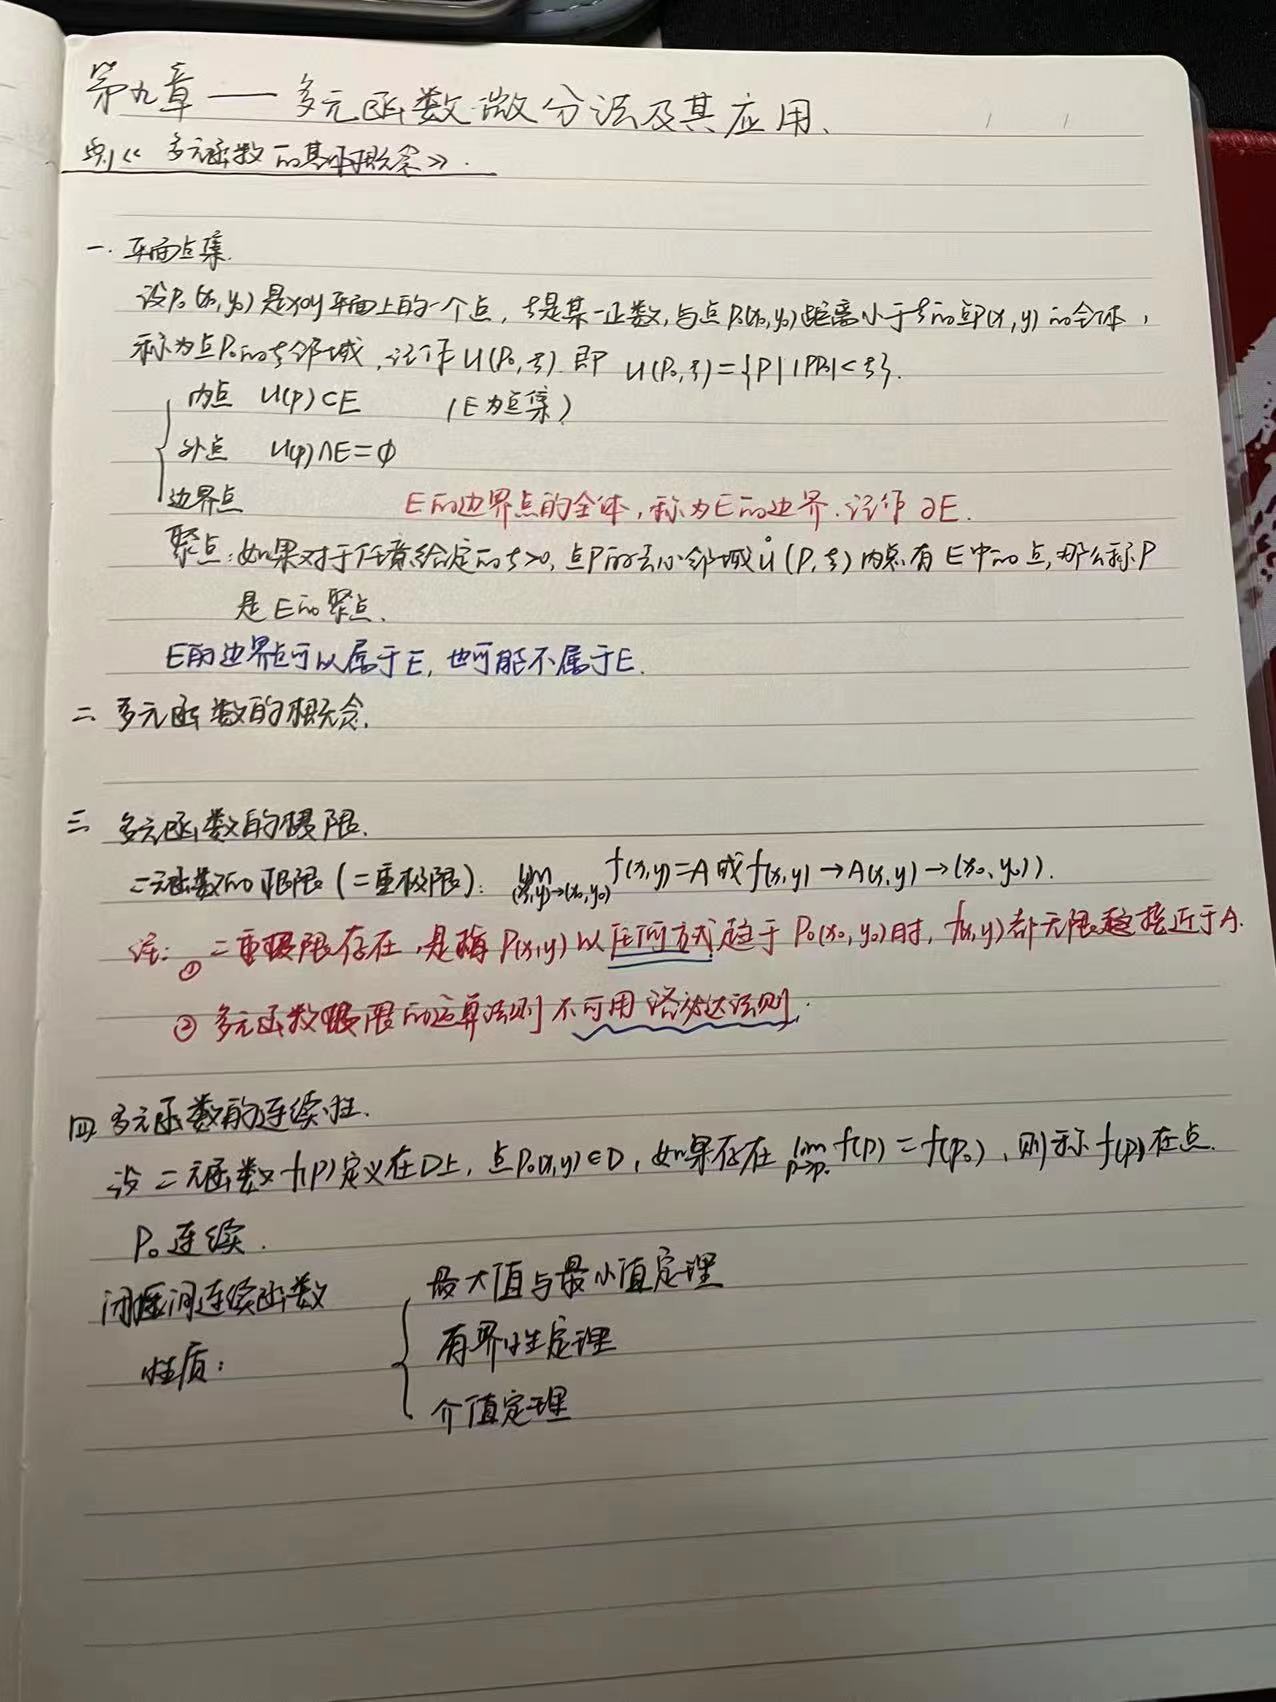 第九章 — 多元函数微分法及其应用、
点1《 多元函数的基本概念》.
一. 平面点集.
设P₀(x₀,y₀)是xoy平面上的一个点, δ是某一正数,与点P₀(x₀,y₀)距离小于δ的点P(x,y)的全体,
称为点P₀的δ邻域,记作U(P₀,δ) 即 U(P₀,δ)={P||PP₀|<δ}.
内点 U(P)⊂E (E为点集)
外点 U(P)∩E=∅
边界点 E的边界点的全体,称为E的边界.记作∂E.
聚点:如果对于任意给定的δ>0,点P的去心邻域Ů(P,δ)内总有E中的点,那么称P
是E的聚点.
E的边界点可以属于E,也可能不属于E.
二 多元函数的概念.
三 多元函数的极限.
二元函数的极限(二重极限): lim f(x,y)=A或f(x,y)→A(x,y)→(x₀,y₀)).
(x,y)→(x₀,y₀)
注: ①二重极限存在,是指P(x,y)以任何方式趋于P₀(x₀,y₀)时, f(x,y)都无限接近于A.
② 多元函数极限的运算法则不可用洛必达法则.
四 多元函数的连续性.
设二元函数f(P)定义在D上, 点P₀(x,y)∈D, 如果存在 lim f(P)=f(P₀), 则称f(P)在点
P→P₀
P₀连续.
闭区间连续函数
性质:
最大值与最小值定理
有界性定理
介值定理